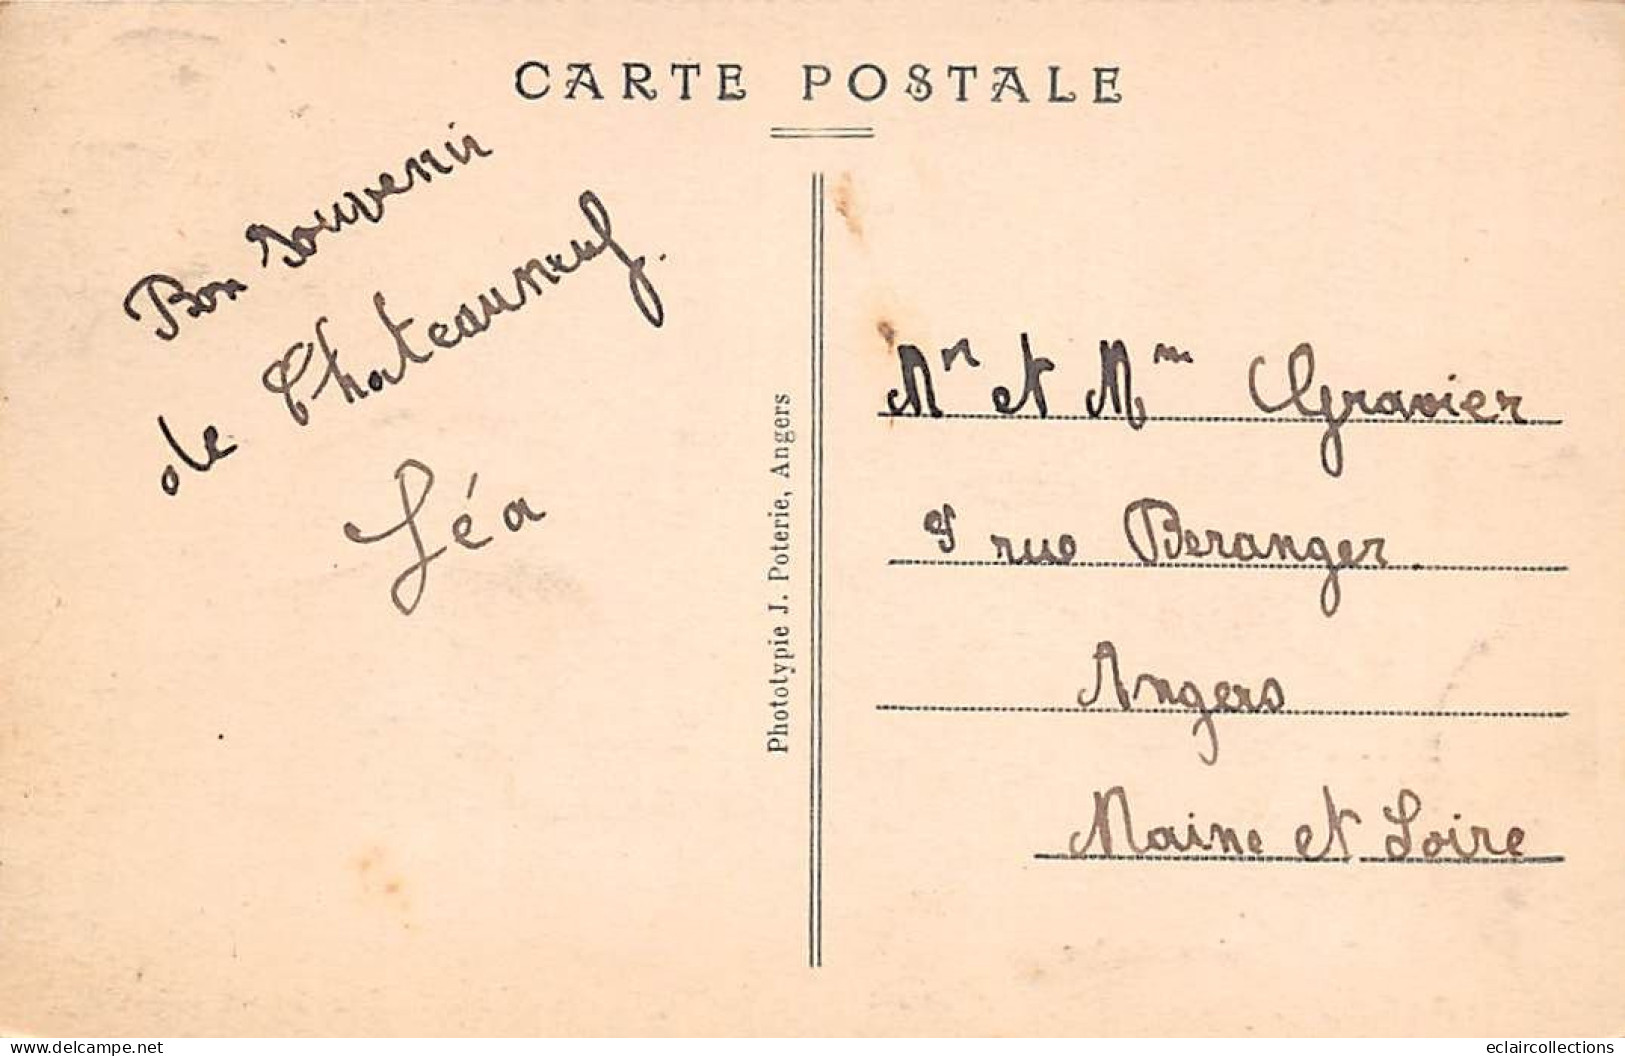 CARTE POSTALE
Bon Souvenir
de Chateauneuf.
Léa
Phototypie J. Poterie, Angers
Mr et Mme Gravier
rue Beranger.
Angers
Maine et Loire
www.delcampe.net
eclaircollections